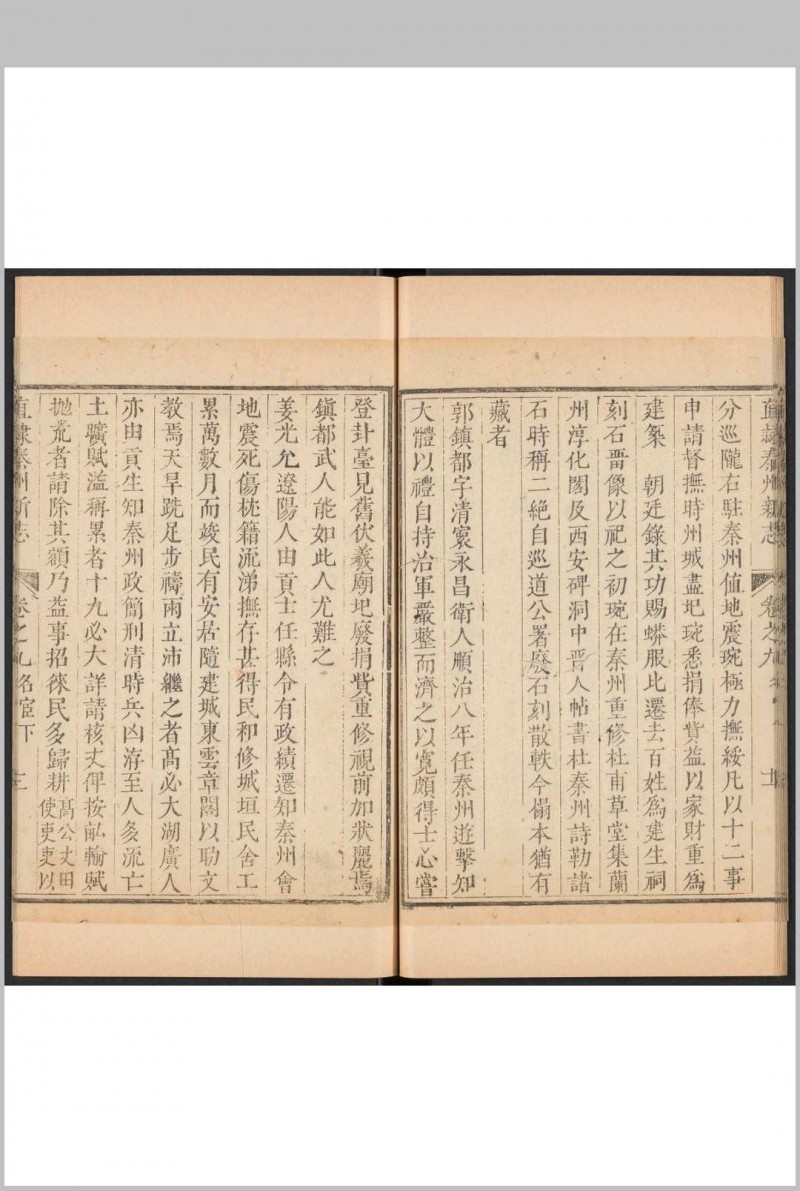 直隸秦州新志
卷之九
分巡隴右駐秦州值地震琬極力撫綏凡以十二事
申請督撫時州城盡圮琬悉捐俸貲益以家財重為
建築　朝廷錄其功賜蟒服比遷去百姓為建生祠
刻石晋像以祀之初琬在秦州重修杜甫草堂集蘭
州淳化閣及西安碑洞中晋人帖書杜秦州詩勒諸
石時稱二絶自巡道公署廢石刻散軼今搨本猶有
藏者
郭鎮都字清寰永昌衛人順治八年任秦州遊擊知
大體以禮自持治軍嚴整而濟之以寛頗得士心嘗
登卦臺見舊伏羲廟圮廢捐貲重修視前加壯麗焉
鎮都武人能如此人尤難之
姜光允遼陽人由貢士任縣令有政績遷知秦州會
地震死傷枕籍流涕撫存甚得民和修城垣民舍工
累萬數月而竣民有安居隨建城東雲章閣以助文
教焉天旱跣足步禱雨立沛繼之者高必大湖廣人
亦由貢生知秦州政簡刑清時兵凶洊至人多流亡
土曠賦濫稱累者十九必大詳請核丈俾按畝輸賦
抛荒者請除其額乃益事招徠民多歸耕高公丈田
使吏吏以
直隸秦州新志
卷之九名宦下